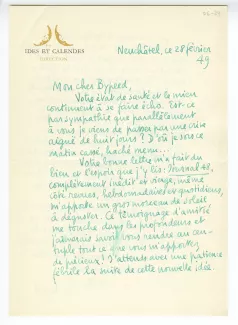 IDES ET CALENDES
DIRECTION
Neuchâtel, ce 28 février
49
Mon cher
Votre état de santé et le mien
continuent à se faire écho. Est-ce
par sympathie que parallèlement
à vous je viens de passer par une crise
aiguë de huit jours ? D'où je sors ce
matin cassé, haché menu...
Votre bonne lettre m'a fait du
bien et l'espoir que j'y lis: Journal 48,
complètement inédit et ainsi, même
côté revues, hebdomadaires et quotidiens,
m'apporte un gros morceau de soleil
à déguster. Ce témoignage d'amitié
me touche dans les profondeurs et
j'aimerais savoir vous rendre au cen-
tuple tout ce que vous m'apportez
de précieux! J'attends avec une patience
fébrile la suite de cette nouvelle idée
!